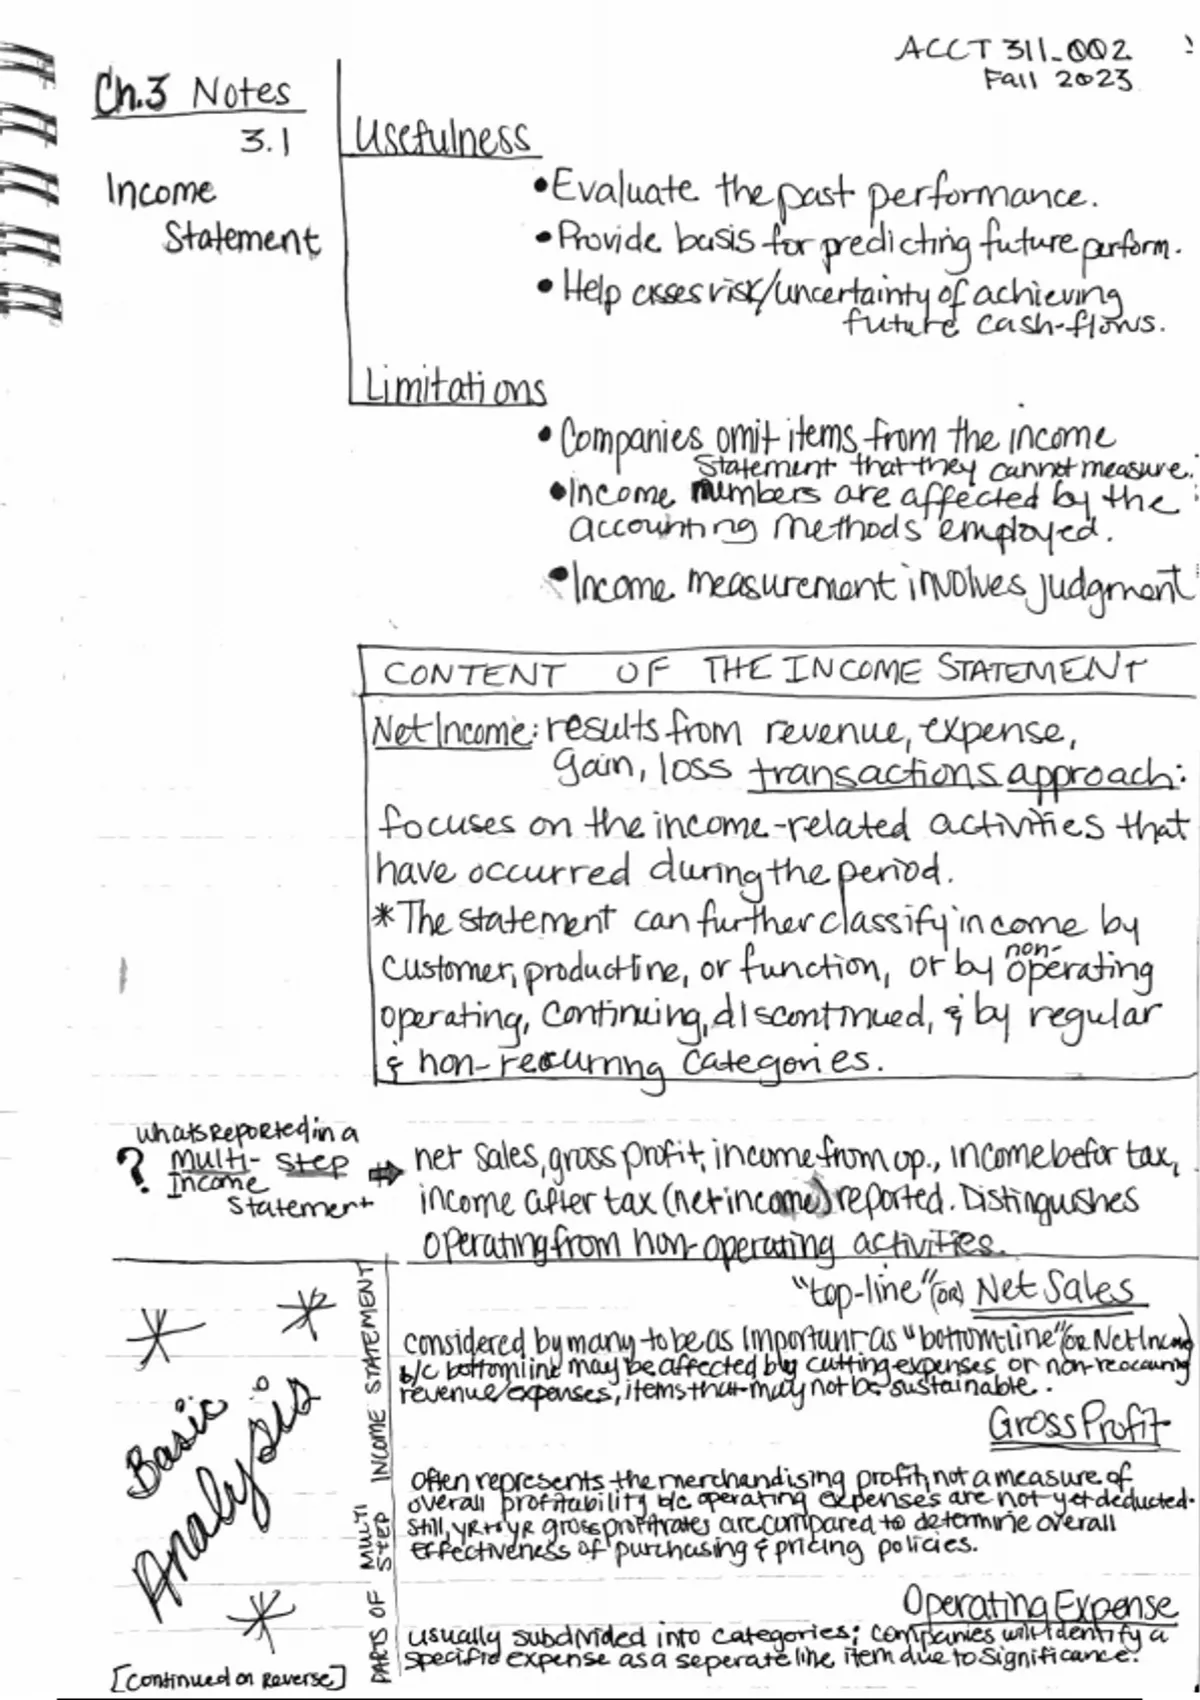 ACCT 311-002
Fall 2023
Ch.3 Notes
3.1
Income
Statement
Usefulness
•Evaluate the past performance.
•Provide basis for predicting future perform.
•Help asses risk/uncertainty of achieving
future cash-flows.
Limitations
•Companies omit items from the income
statement that they cannot measure.
•Income numbers are affected by the
accounting methods employed.
•Income measurement involves judgment
CONTENT OF THE INCOME STATEMENT
Net Income: results from revenue, expense,
gain, loss transactions approach:
focuses on the income-related activities that
have occurred during the period.
*The statement can further classify income by
customer, product line, or function, or by operating
non-
operating, continuing, discontinued, & by regular
& non-recurring categories.
whats Reported in a
? Multi-Step
Income
Statement
net sales, gross profit, income from op., income befor tax,
income after tax (net income) reported. Distinguishes
operating from non-operating activities.
"top-line" (OR) Net Sales
considered by many to be as important as "bottom-line" (OR Net Income)
b/c bottomline may be affected by cutting expenses or non-reoccuring
revenue/expenses, items that may not be sustainable.
Gross Profit
often represents the merchandising profit, not a measure of
overall profitability b/c operating expenses are not yet deducted.
Still, yr to yr gross profit rates are compared to determine overall
effectiveness of purchasing & pricing policies.
Operating Expense
usually subdivided into categories; companies will identify a
specific expense as a seperate line item due to significance.
PARTS OF MULTI STEP INCOME STATEMENT
Basic
Analysis
[Continued on Reverse]